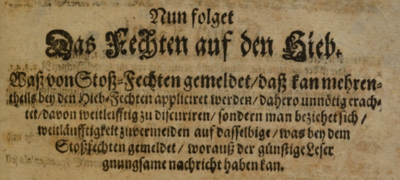 Nun folget
Das Fechten auf den Hieb.
Waß von Stoß-Fechten gemeldet/daß kan mehren-
theils bey den Hieb-Fechten appliciret werden/dahero unnötig erach-
tet/davon weitleifftig zu discuriren/sondern man beziehet sich/
weitläufftigkeit zuvermeiden auf dasselbige/was bey dem
Stoßfechten gemeldet/worauß der günstige Leser
gnungsame nachricht haben kan.